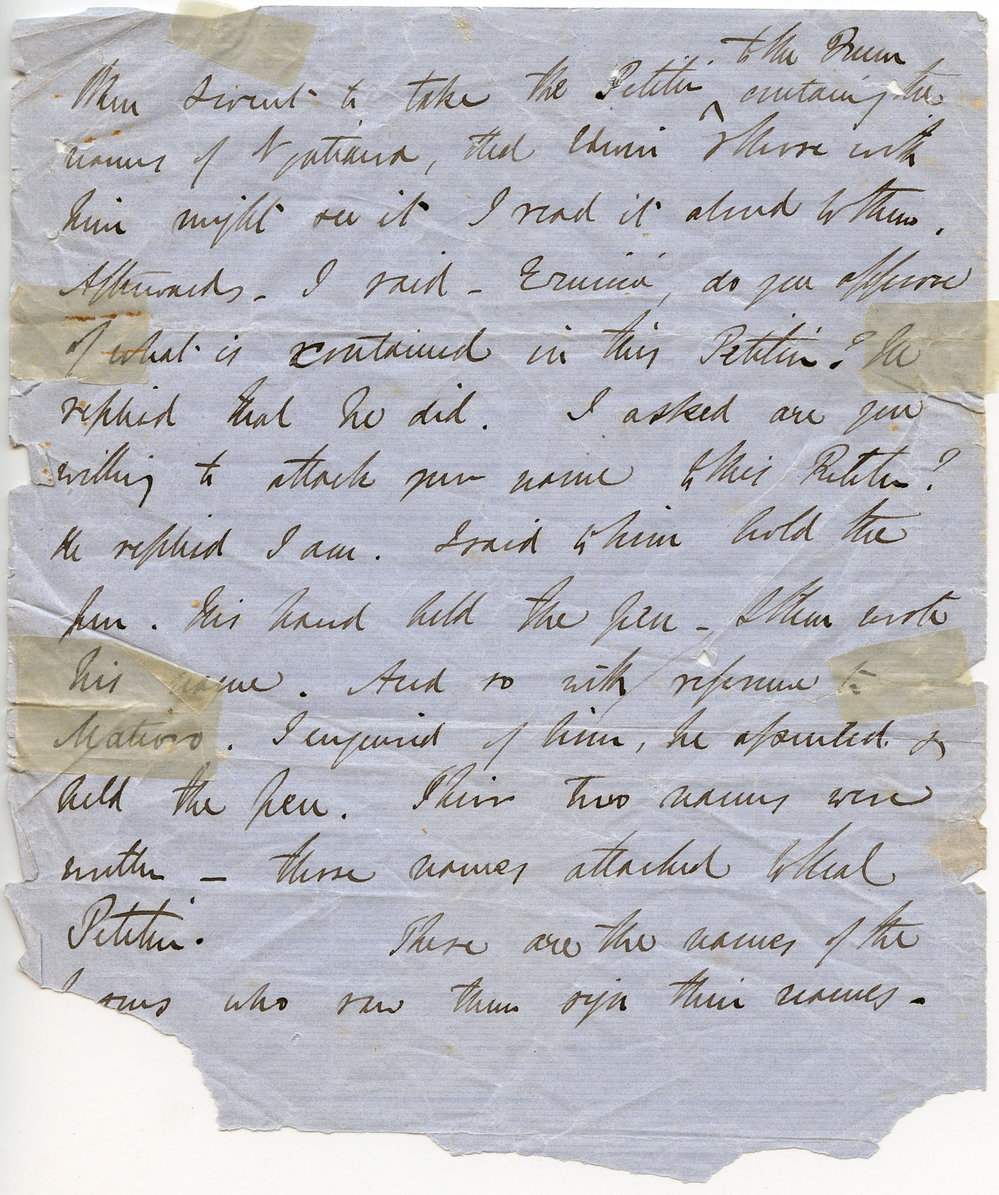 to the Queen
When I went to take the Petition containing the
names of Ngatiawa, that Eruini & those with
him might see it I read it aloud to them.
Afterwards - I said - Eruini, do you approve
of what is contained in this Petition? He
replied that he did. I asked are you
willing to attach your name to this Petition?
He replied I am. I said to him hold the
pen. His hand held the pen - I then wrote
his name. And so with reference to
Matiro. I enquired of him, he assented &
held the pen. Their two names were
written - those names attached to that
Petition. These are the names of the
who saw them sign their names -